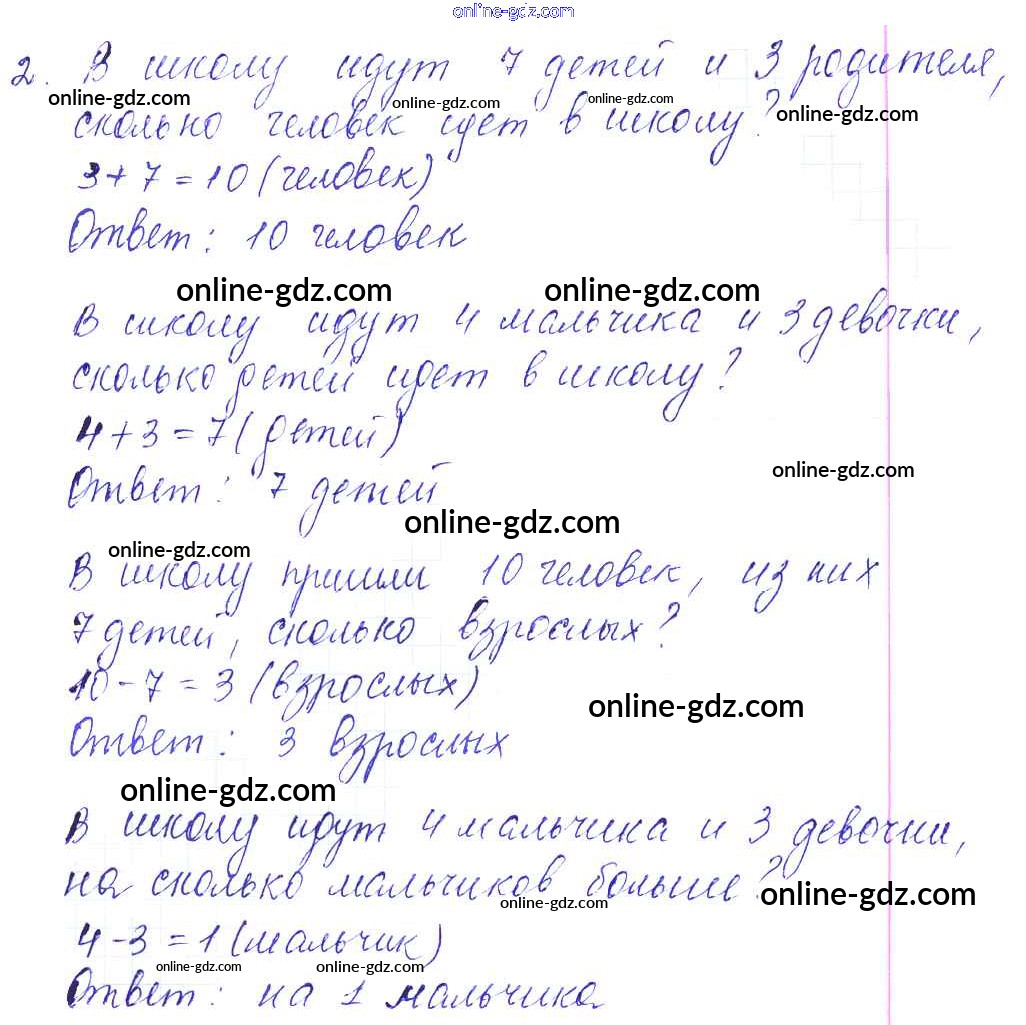 online-gdz.com
2. В школу идут 7 детей и 3 родителя,
online-gdz.com online-gdz.com online-gdz.com online-gdz.com
сколько человек идет в школу?
3+7=10 (человек)
Ответ: 10 человек
online-gdz.com online-gdz.com
В школу идут 4 мальчика и 3 девочки,
сколько детей идет в школу?
4+3=7 (детей)
online-gdz.com
Ответ: 7 детей
online-gdz.com
online-gdz.com
В школу пришли 10 человек, из них
7 детей, сколько взрослых?
10-7=3 (взрослых)
online-gdz.com
Ответ: 3 взрослых
online-gdz.com
В школу идут 4 мальчика и 3 девочки,
на сколько мальчиков больше?
online-gdz.com online-gdz.com
4-3=1 (мальчик)
online-gdz.com online-gdz.com
Ответ: на 1 мальчика